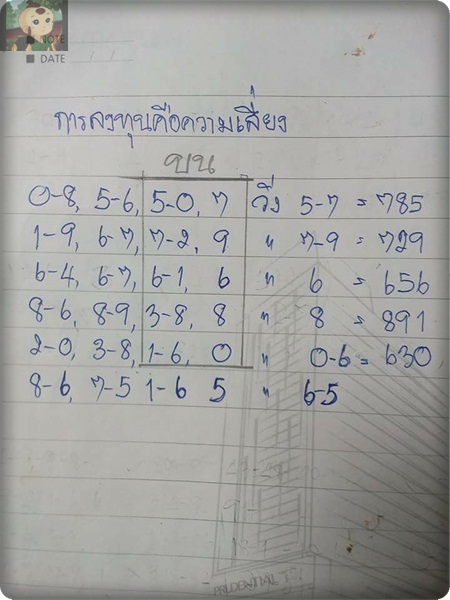 NOTE
DATE
การลงทุนคือความเสี่ยง
บน
0-8, 5-6, 5-0, 7 วิ่ง 5-7 = 785
1-9, 6-7, 7-2, 9 " 7-9 = 729
6-4, 6-7, 6-1, 6 " 6 = 656
8-6, 8-9, 3-8, 8 " 8 = 891
2-0, 3-8, 1-6, 0 " 0-6 = 630
8-6, 7-5 1-6 5 " 6-5
PRUDENTIAL